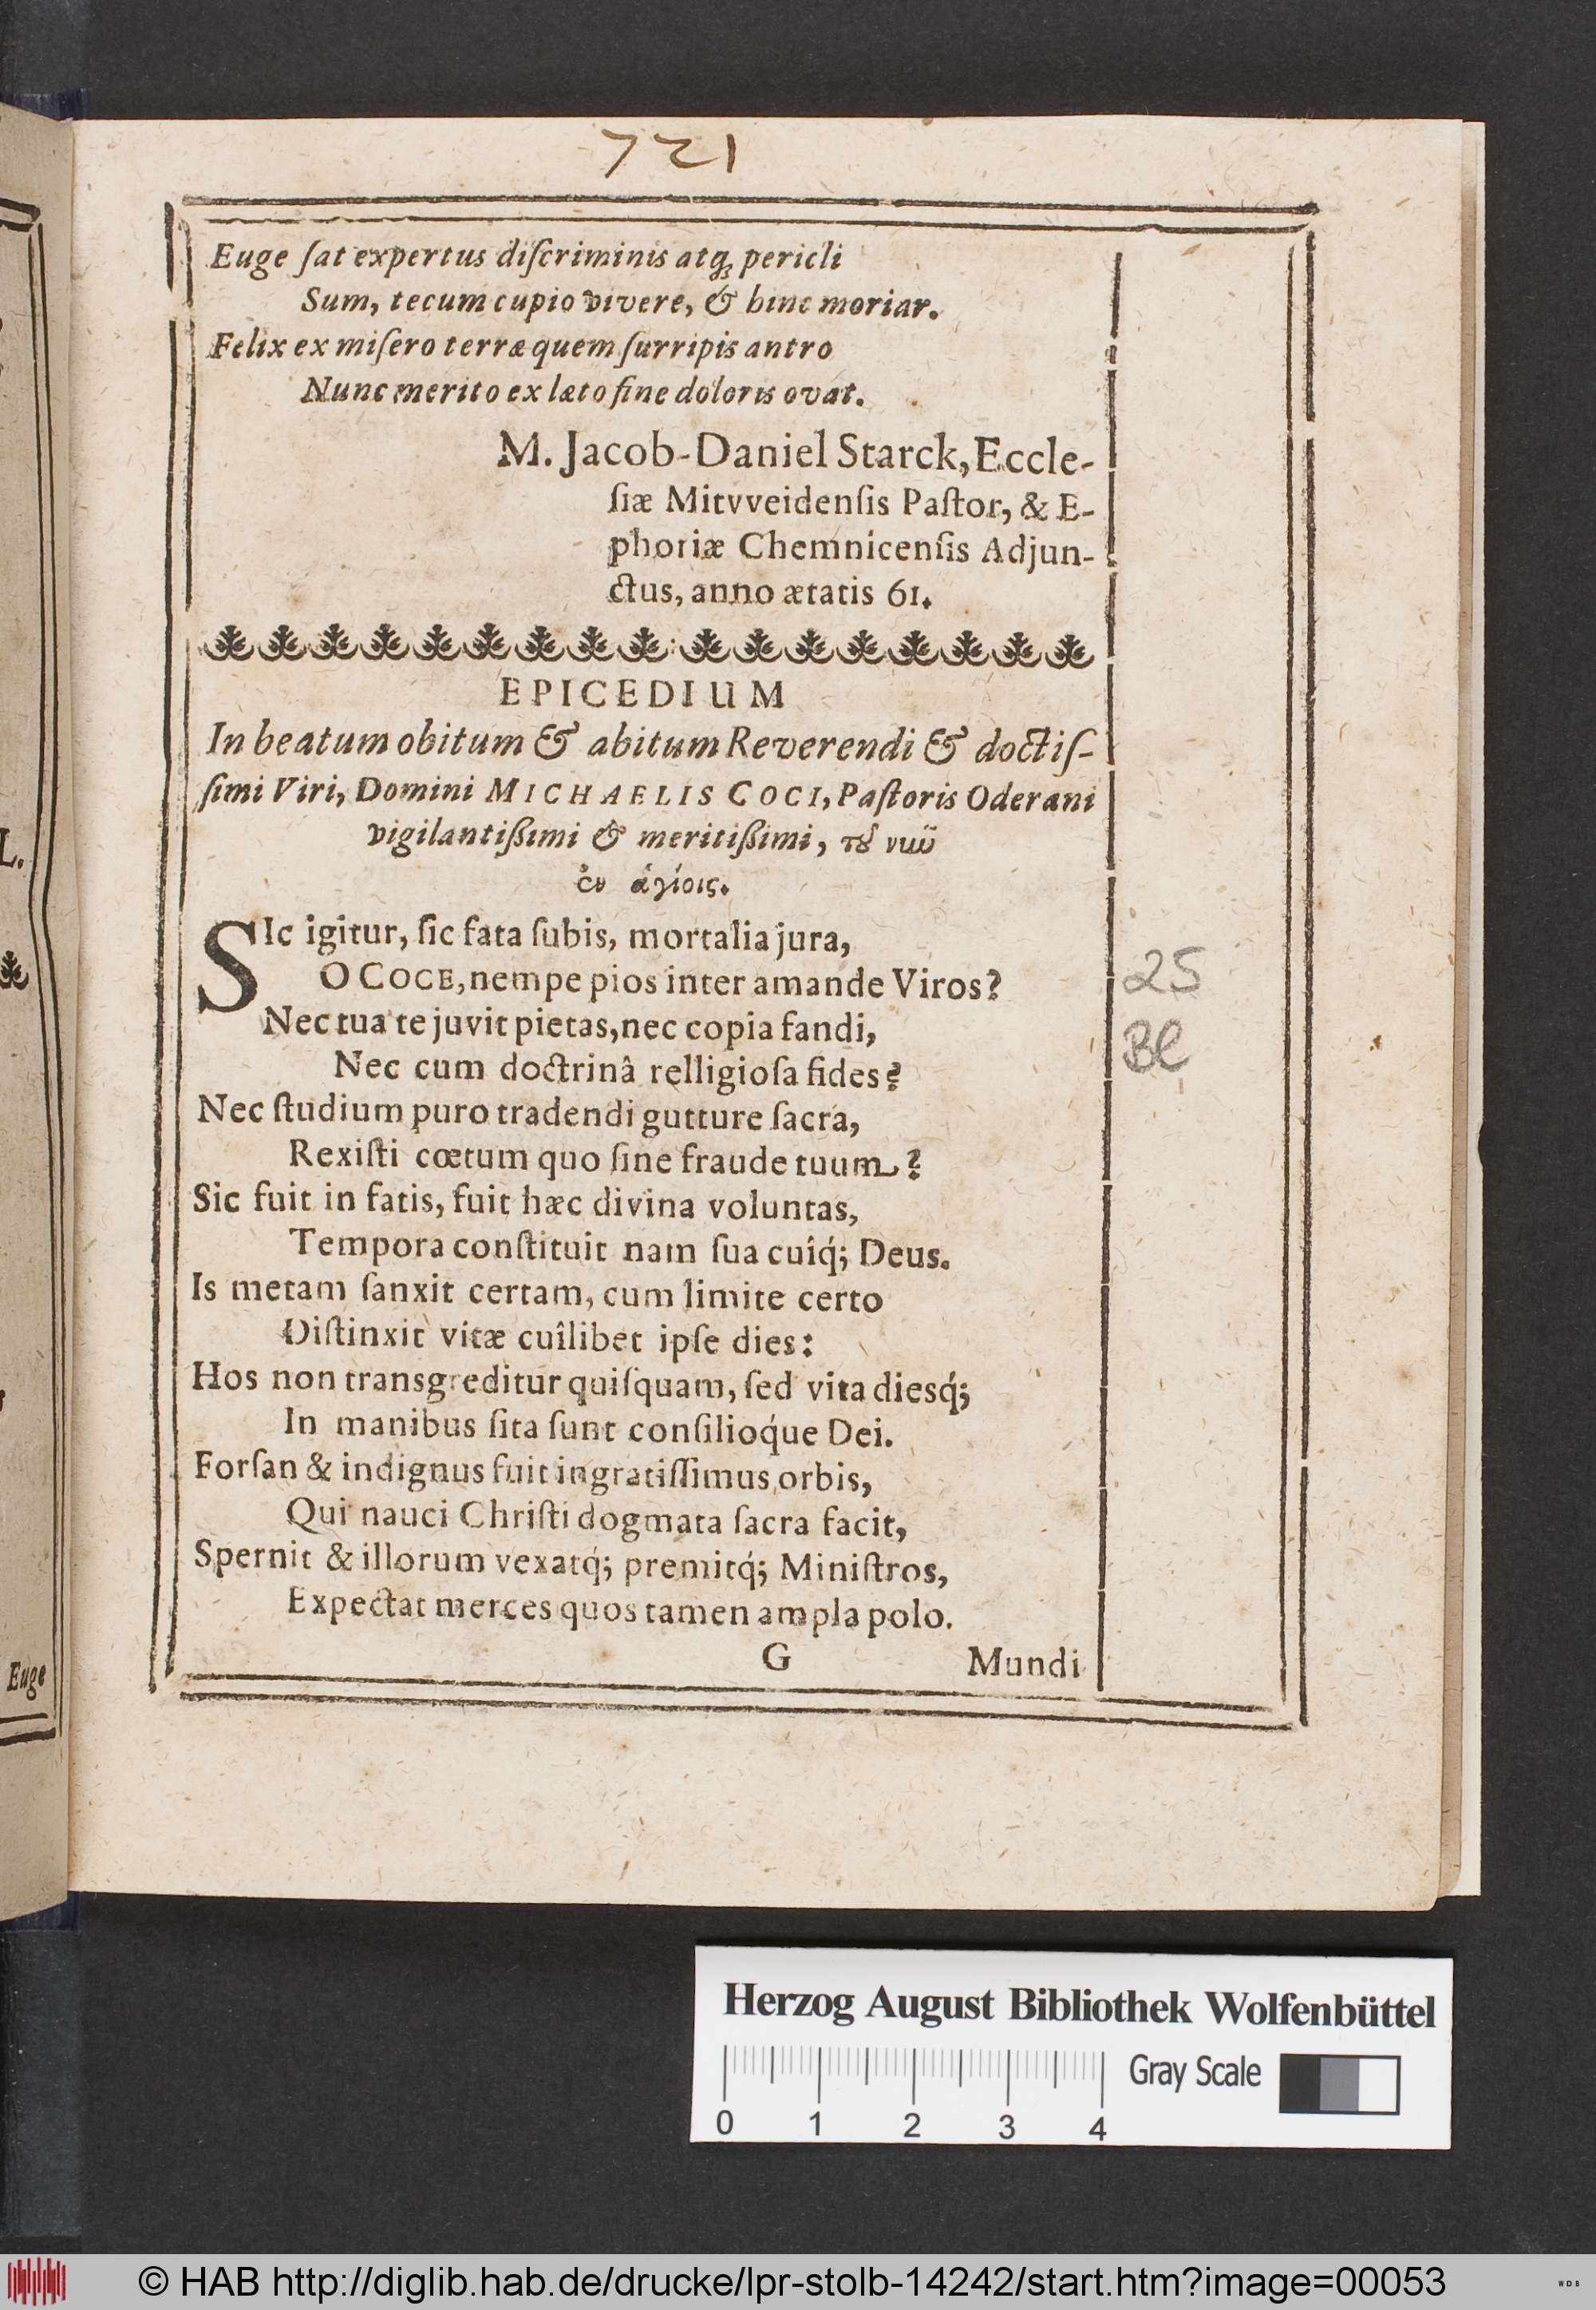 721
Euge ſat expertus diſcriminis atq; pericli
Sum, tecum cupio vivere, & hinc moriar.
Felix ex miſero terræ quem ſurripis antro
Nunc merito ex læto fine doloris ovat.
M. Jacob-Daniel Starck, Eccle-
ſiæ Mitvveidenſis Paſtor, & E-
phoriæ Chemnicenſis Adjun-
ctus, anno ætatis 61.
EPICEDIUM
In beatum obitum & abitum Reverendi & doctiſ-
ſimi Viri, Domini MICHAELIS COCI, Paſtoris Oderani
vigilantißimi & meritißimi, τȣ͂
ἐν ἁγίοις.
SIc igitur, ſic fata ſubis, mortalia jura,
O COCE, nempe pios inter amande Viros?
Nec tua te juvit pietas, nec copia fandi,
Nec cum doctrinâ relligioſa fides?
Nec ſtudium puro tradendi gutture ſacra,
Rexiſti cœtum quo ſine fraude tuum?
Sic fuit in fatis, fuit hæc divina voluntas,
Tempora conſtituit nam ſua cuîq́; Deus.
Is metam ſanxit certam, cum limite certo
Diſtinxit vitæ cuîlibet ipſe dies:
Hos non transgreditur quiſquam, ſed vita diesq́;
In manibus ſita ſunt conſilioq́ue Dei.
Forſan & indignus fuit ingratiſſimus orbis,
Qui nauci Chriſti dogmata ſacra facit,
Spernit & illorum vexatq́; premitq́; Miniſtros,
Expectat merces quos tamen ampla polo.
G Mundi
25
Bl
L.
Euge
Herzog August Bibliothek Wolfenbüttel
Gray Scale
0 1 2 3 4
© HAB http://diglib.hab.de/drucke/lpr-stolb-14242/start.htm?image=00053
WDB